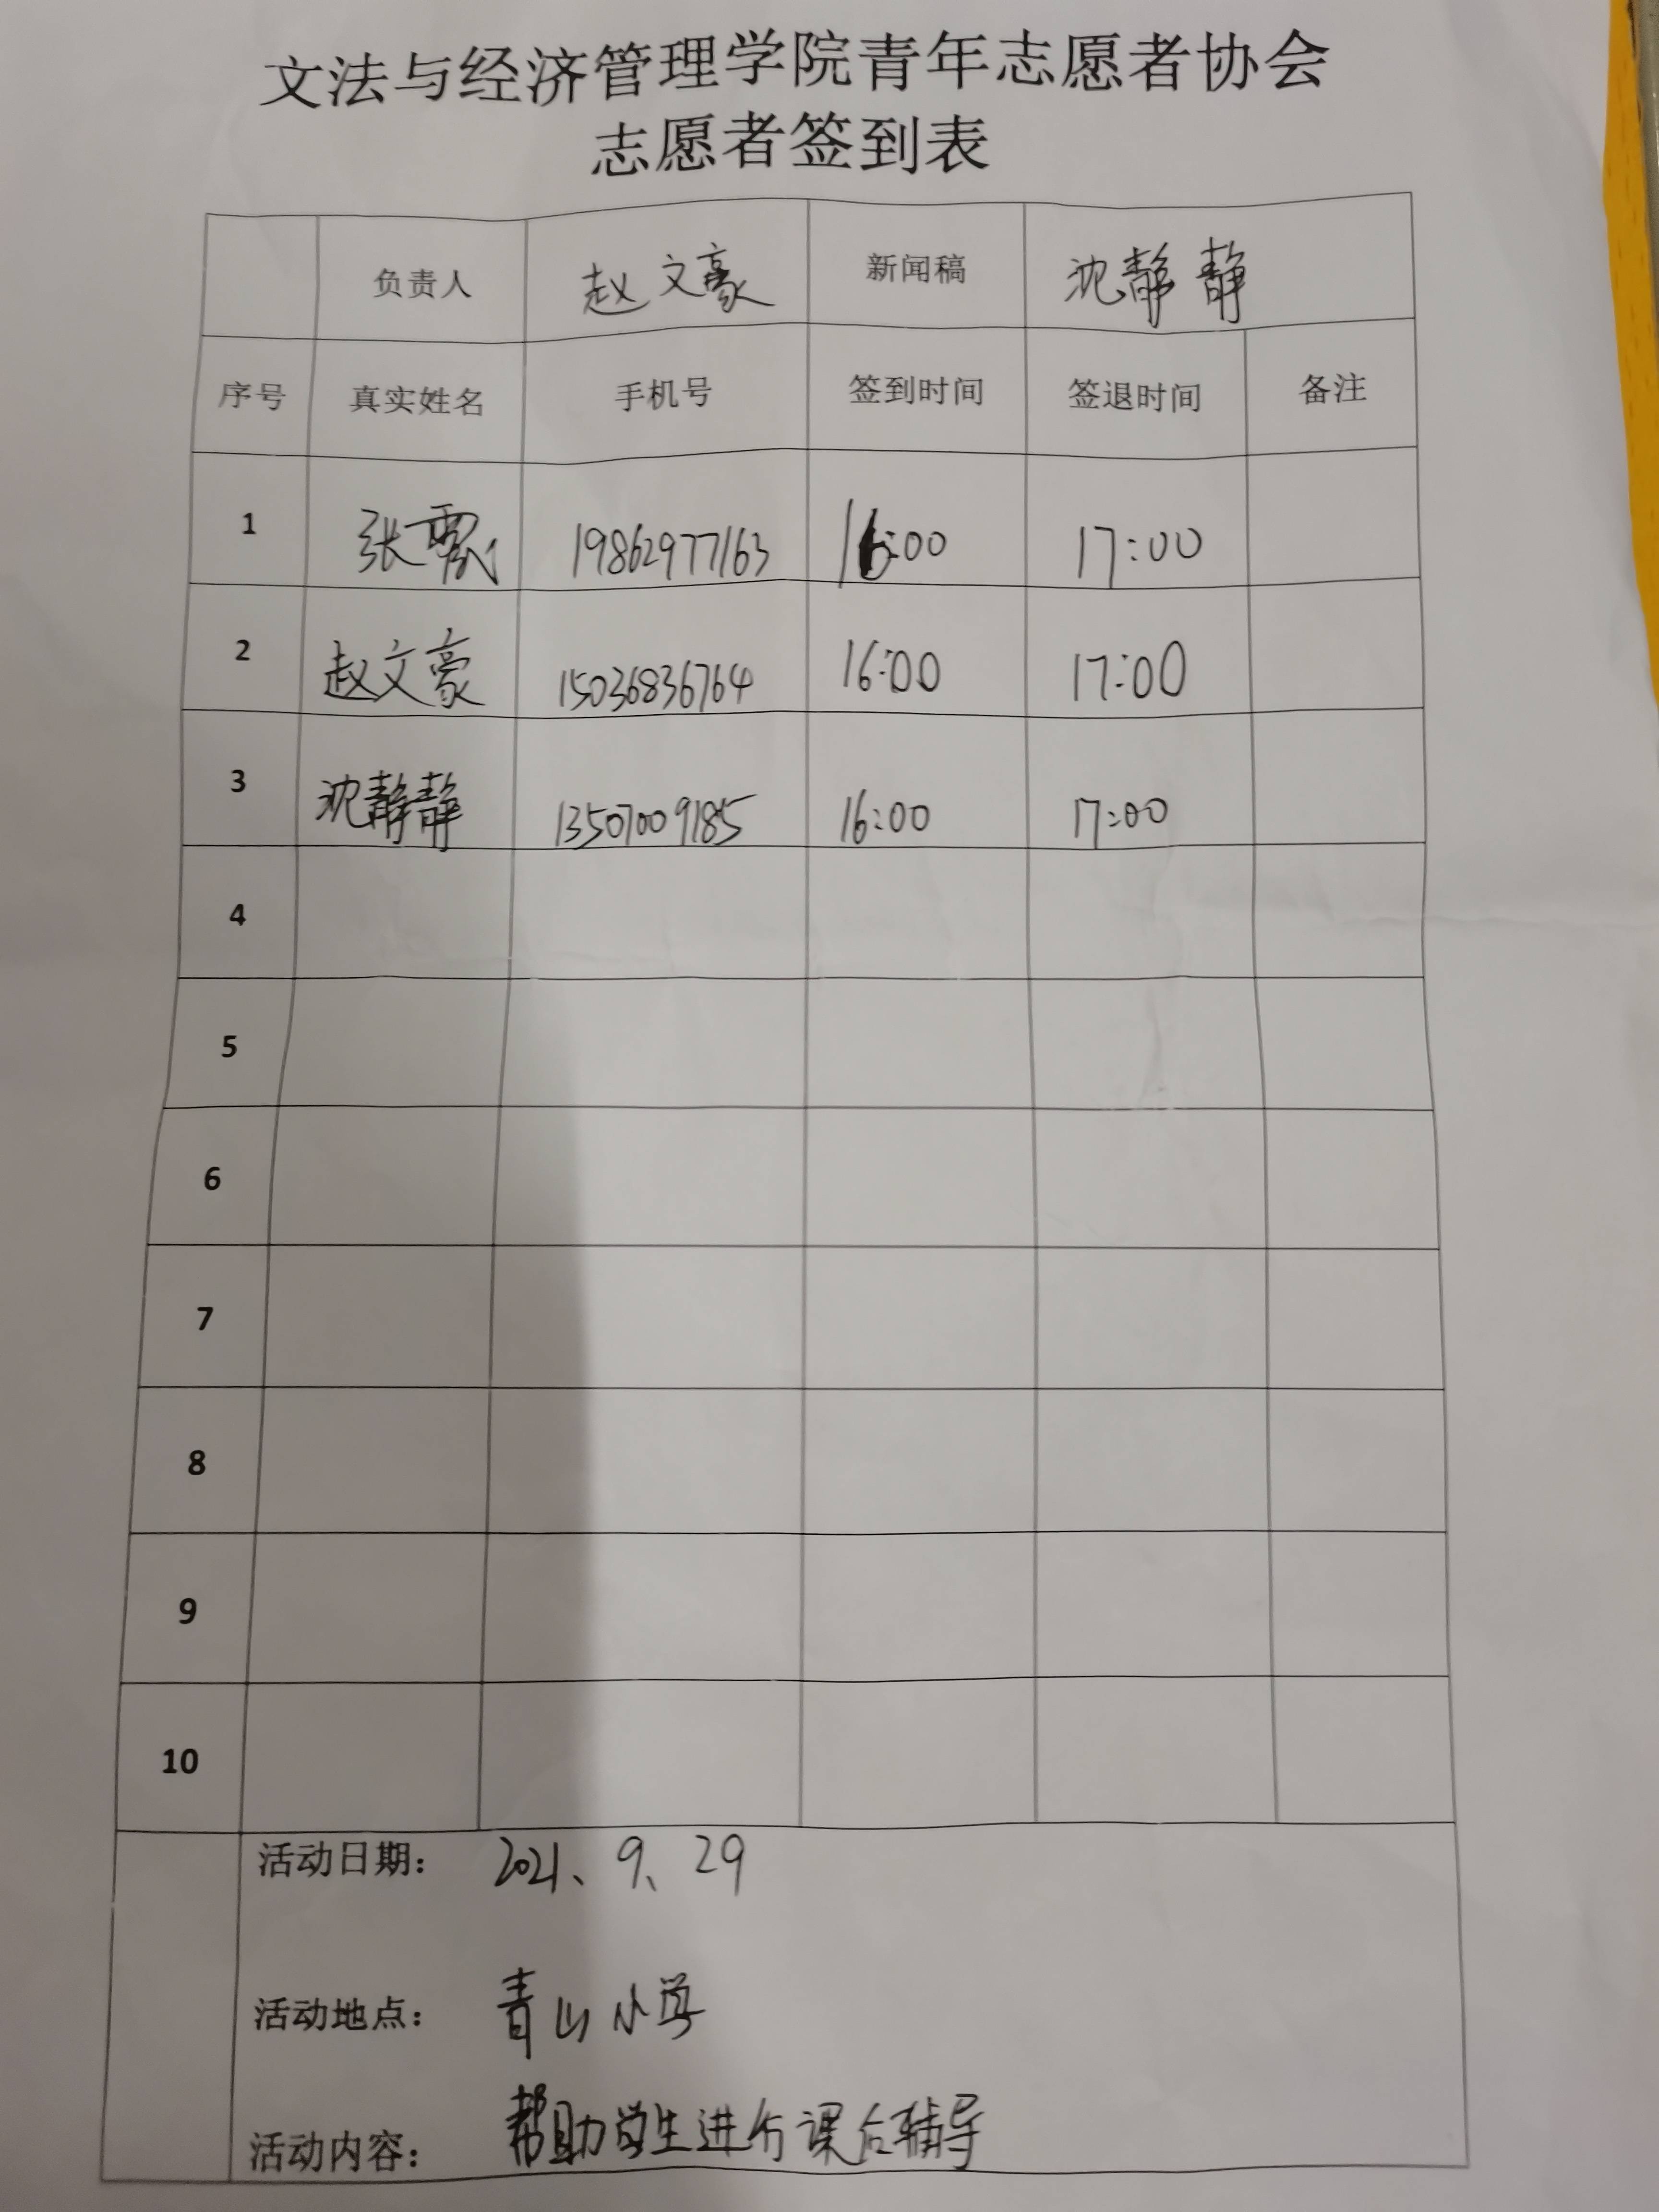 文法与经济管理学院青年志愿者协会
志愿者签到表
负责人 赵文豪 新闻稿 沈静静
序号 真实姓名 手机号 签到时间 签退时间 备注
1 张 19862977163 16:00 17:00
2 赵文豪 15036836764 16:00 17:00
3 沈静静 13507009185 16:00 17:00
4
5
6
7
8
9
10
活动日期： 2021、9、29
活动地点： 青山小学
活动内容： 帮助学生进行课后辅导